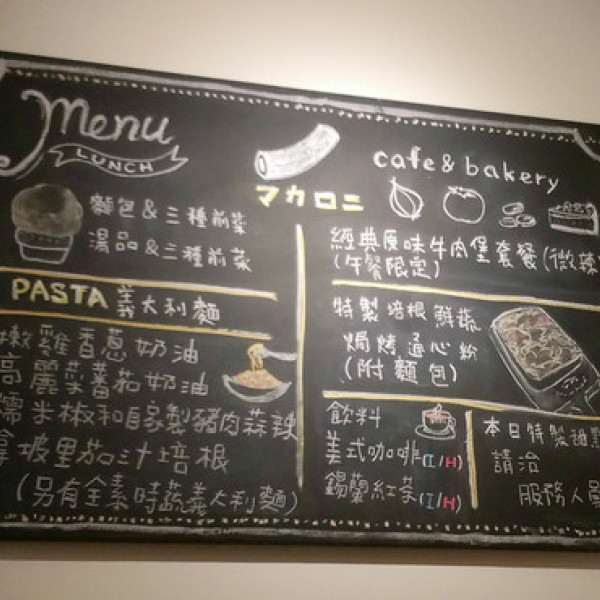 Menu
LUNCH
マカロニ
cafe & bakery
麵包 & 三種前菜
湯品 & 三種前菜
PASTA 義大利麵
嫩雞香蔥奶油
高麗菜蕃茄奶油
糯米椒和自家製豬肉蒜辣
拿坡里茄汁培根
(另有全素時蔬義大利麵)
經典原味牛肉堡套餐(微辣
(午餐限定)
特製培根鮮蔬
焗烤通心粉
(附麵包)
飲料
美式咖啡(I/H)
錫蘭紅茶(I/H)
本日特製甜點
請洽
服務人員